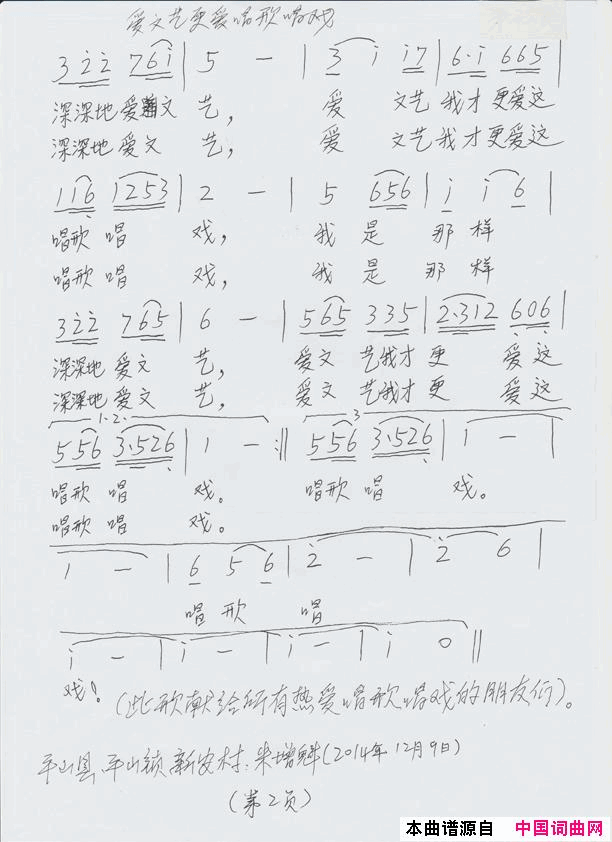 爱文艺更爱唱歌唱戏
3 2̇ 2̇ 7 6 i | 5 - | 3 i i 7 | 6· i 6 6 5 |
深深地爱文 艺, 爱 文艺我才更爱这
深深地爱文 艺, 爱 文艺我才更爱这
1 1 6 1 2 5 3 | 2 - | 5 6 5 6 | i i 6 |
唱歌 唱 戏, 我 是 那 样
唱歌 唱 戏, 我 是 那 样
3 2̇ 2̇ 7 6 5 | 6 - | 5 6 5 3 3 5 | 2·3 1 2 6 0 6 |
深深地 爱文 艺, 爱文 艺我才 更 爱 这
深深地 爱文 艺, 爱文 艺我才 更 爱 这
1·2· 3
5 5 6 3·5 2 6 | 1 - :‖ 5 5 6 3·5 2 6 | i - |
唱歌 唱 戏。 唱歌 唱 戏。
唱歌 唱 戏。
i - | 6 5 6 | 2̇ - | 2̇ 6 |
唱 歌 唱
i - | i - | i - | i 0 ‖
戏! (此歌献给所有热爱唱歌唱戏的朋友们)。
平山县平山镇新安村: 米增魁(2014年12月9日)
(第2页)
本曲谱源自 中国词曲网